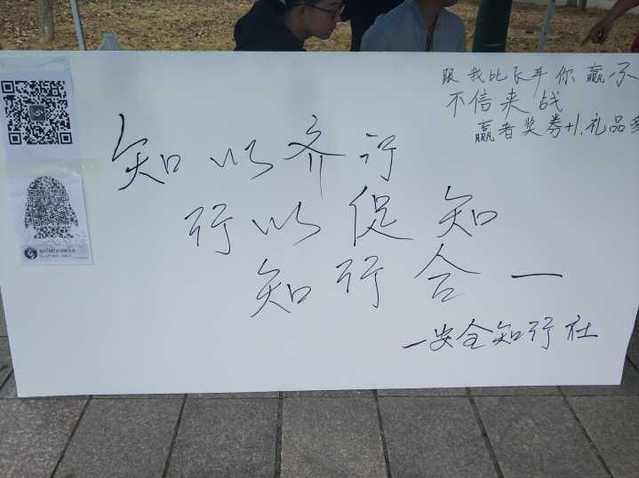 跟我比长平你赢不
不信来战
赢者奖券+1.礼品多
知以齐行
行以促知
知行合一
一安全知行社